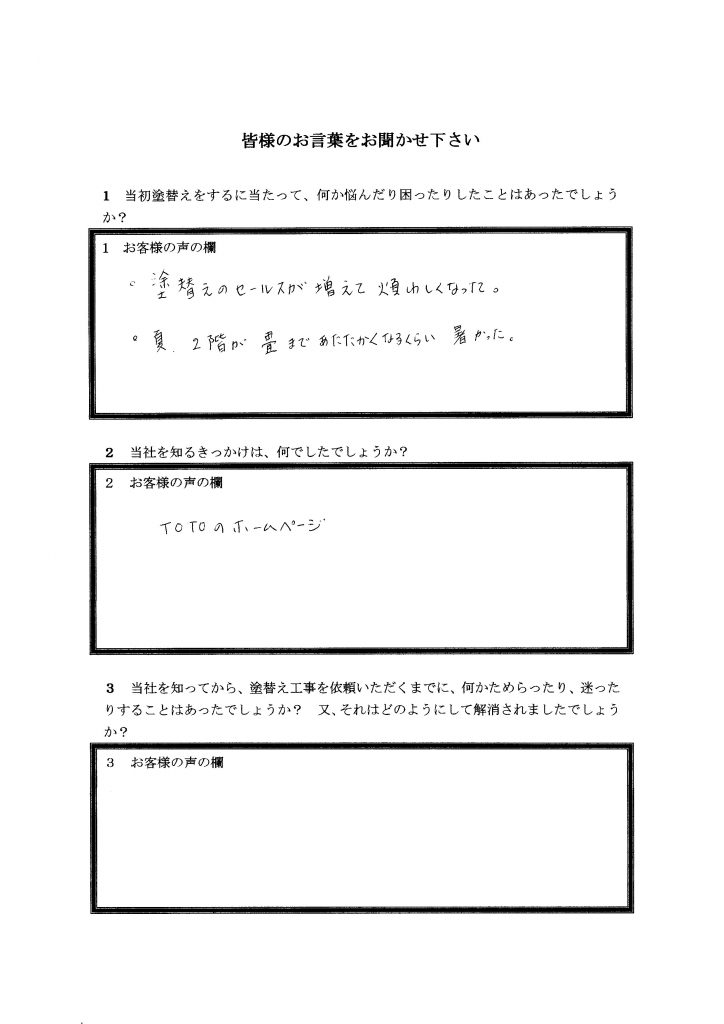 皆様のお言葉をお聞かせ下さい
1 当初塗替えをするに当たって、何か悩んだり困ったりしたことはあったでしょう
か？
1 お客様の声の欄
。塗替えのセールスが増えて煩わしくなった。
。夏、2階が畳まであたたかくなるくらい暑かった。
2 当社を知るきっかけは、何でしたでしょうか？
2 お客様の声の欄
TOTOのホームページ
3 当社を知ってから、塗替え工事を依頼いただくまでに、何かためらったり、迷った
りすることはあったでしょうか？ 又、それはどのようにして解消されましたでしょう
か？
3 お客様の声の欄